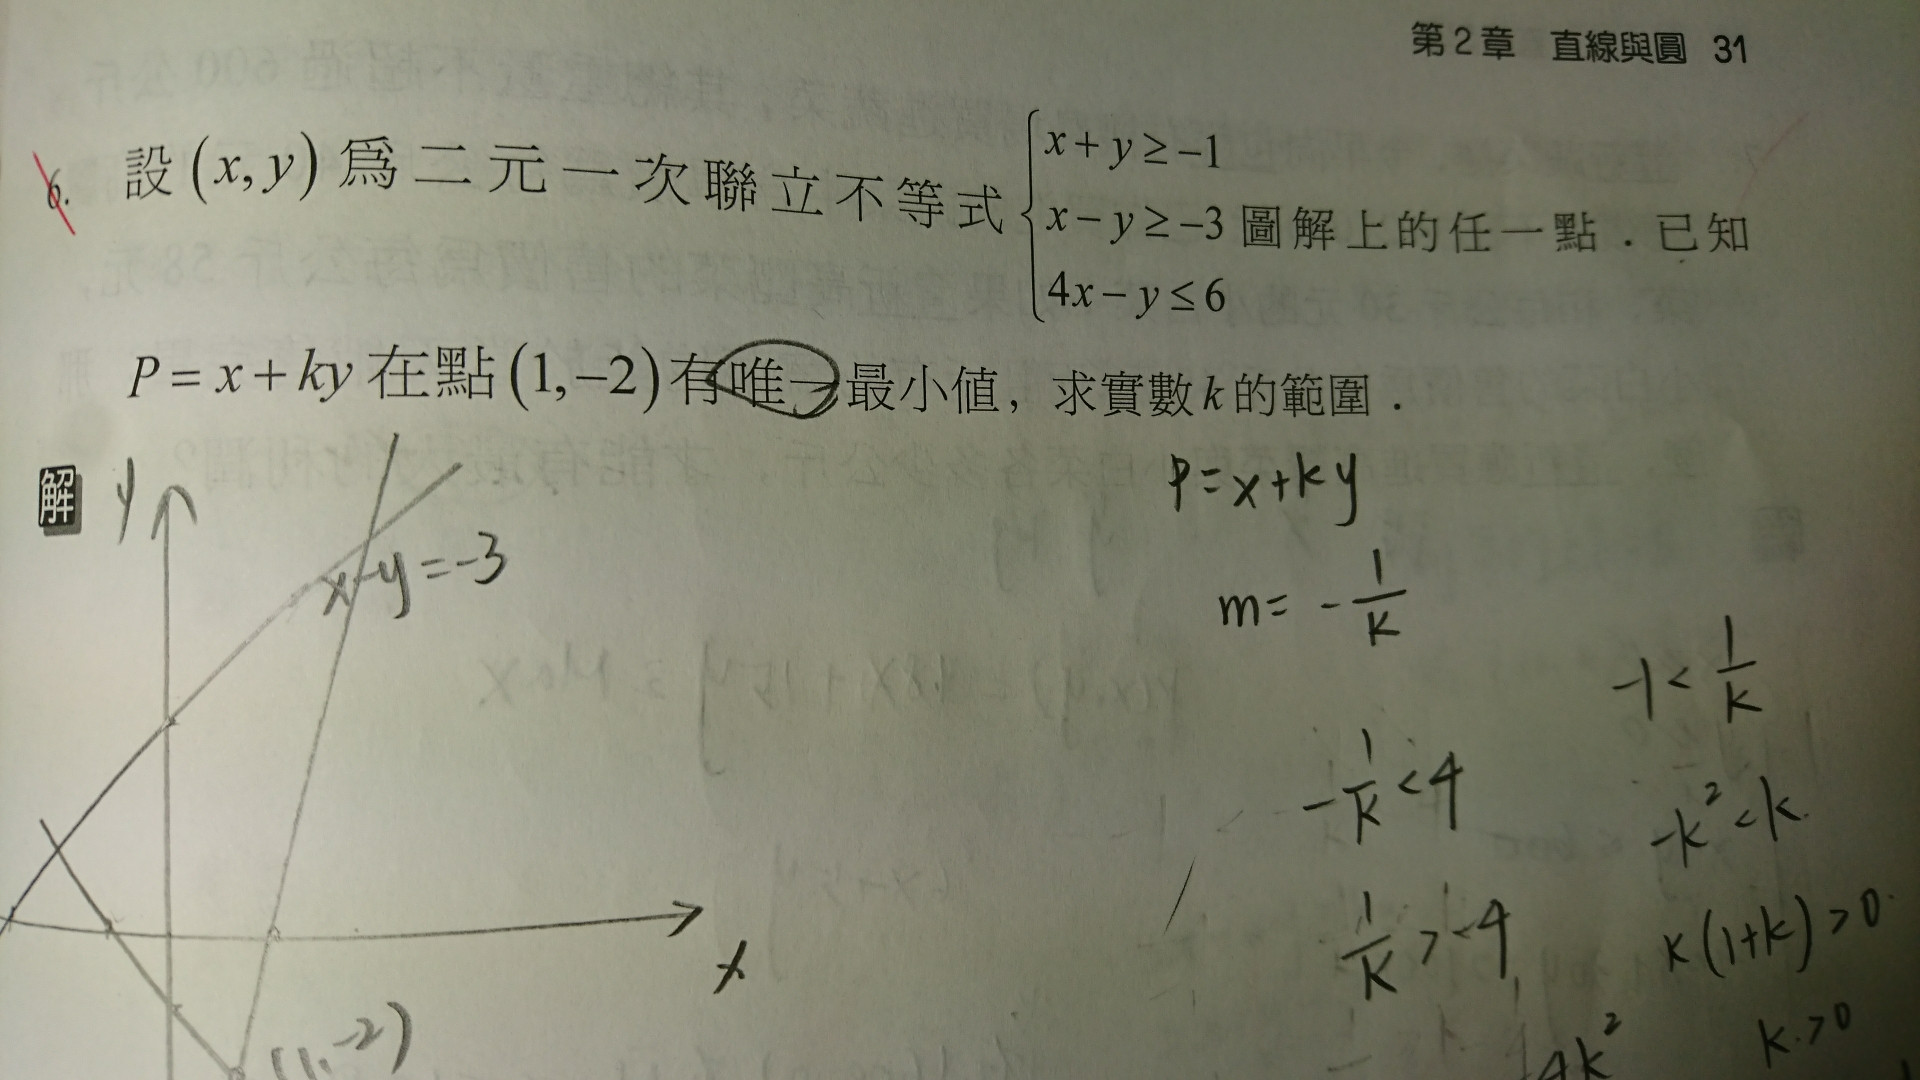 第2章 直線與圓 31
6. 設(x,y)為二元一次聯立不等式{x+y≥-1
x-y≥-3 圖解上的任一點．已知
4x-y≤6
P=x+ky在點(1,-2)有唯一最小值，求實數k的範圍．
解
y
x-y=-3
x
(1,-2)
P=x+ky
m=-1/k
-1/k<4
1/k>-4
4k²
-1<1/k
-k²<k.
k(1+k)>0.
k>0